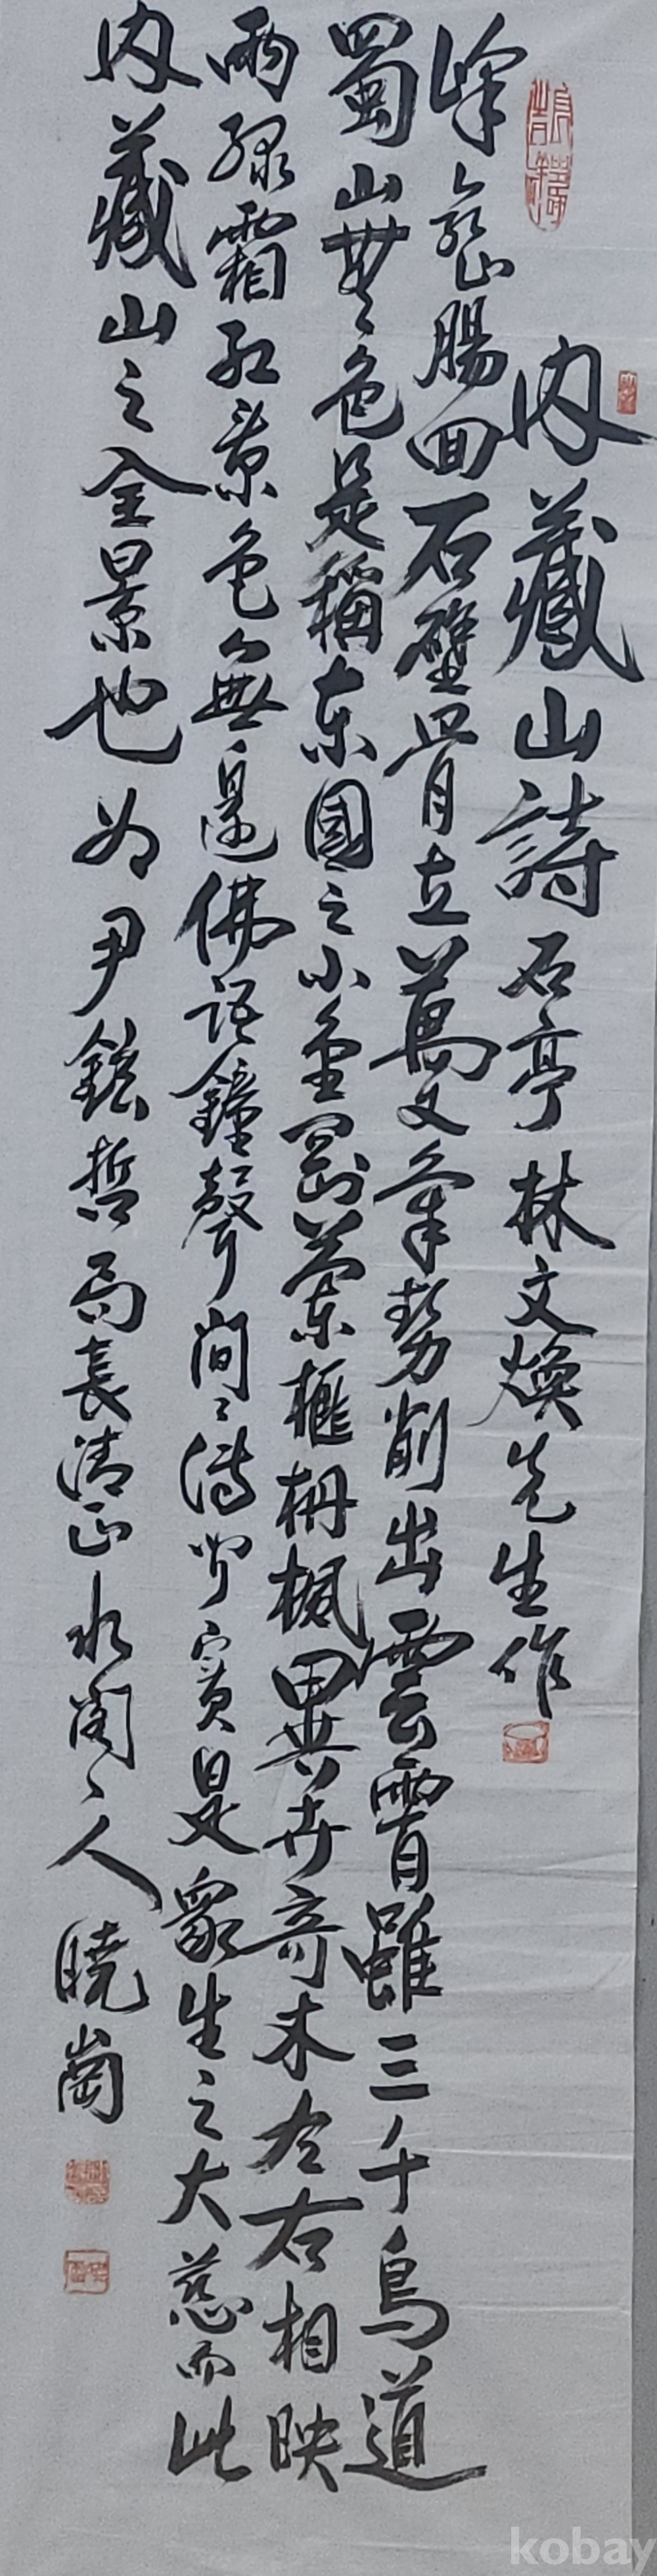 內藏山詩 石亭 林文煥先生作
峰 腸回石壁骨立萬丈氣勢削出雲霄雖三千鳥道
蜀山無色是稱東國之小金剛叢榧柟楓異卉奇木左右相映
雨綠霜紅景色無邊佛語鐘聲間〻濤 實是衆生之大慈而此
內藏山之全景也 為尹鉉哲局長清正 水閣〻人 曉崗
kobay